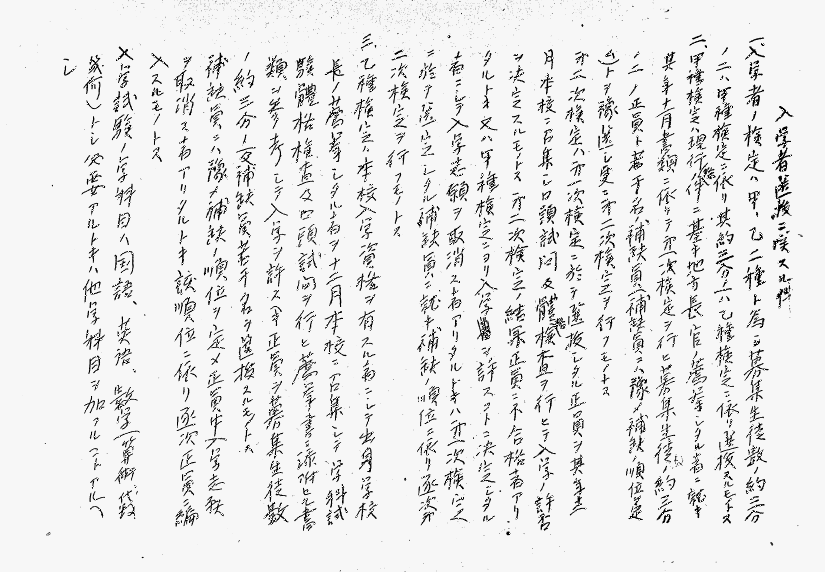 入学者選抜ニ関スル件
一、入学者ノ検定ハ甲、乙二種ト為シ募集生徒数ノ約三分
ノ二ハ甲種検定ニ依リ其約三分ノ一ハ乙種検定ニ依リ選抜スルモトス
二、甲種検定ハ現行ノ件ニ基キ地方長官ノ薦挙シタル者ニ就キ
其年十月書類ニ依リテ第一次検定ヲ行ヒ募集生徒ノ約三分
ノ二ノ正員ト若干名ノ補欠員(補缺員ニハ豫メ補缺ノ順位ヲ定
ム)トヲ豫選シ更ニ第二次検定ヲ行フモノトス
第二次検定ハ第一次検定ニ於テ選抜シタル正員ヲ其年十二
月本校ニ召集シ口頭試問及體格検査ヲ行ヒテ入学ノ許否
ヲ決定スルモノトス 第二次検定ノ結果正員ニ不合格者アリ
タルトキ又ハ甲種検定ニヨリ入学ヲ許スコトニ決定シタル
者ニシテ入学志願ヲ取消ス者アリタルトキハ第一次検定
ニ於テ選定シタル補缺員ニ就キ補缺ノ順位ニ依リ逐次第
二次検定ヲ行フモノトス
三、乙種検定ハ本校入学資格ヲ有スル者ニシテ出身学校
長ノ薦挙シタル者ヲ十二月本校ニ召集シテ学科試
験體格検査及口頭試問ヲ行ヒ薦挙書ニ添附セル書
類ヲ参考シテ入学ヲ許スベキ正員ヲ募集生徒数
ノ約三分ノ一又補缺員若干名ヲ選抜スルモノトス
補缺員ニハ豫メ補缺ノ順位ヲ定メ正員中入学志願
ヲ取消ス者アリタルトキ該順位ニ依リ逐次正員ニ編
入スルモノトス
入学試験ノ学科目ハ国語、英語、数学(算術、代数
幾何)トシ必要アルトキハ他学科目ヲ加フルコトアルヘ
シ